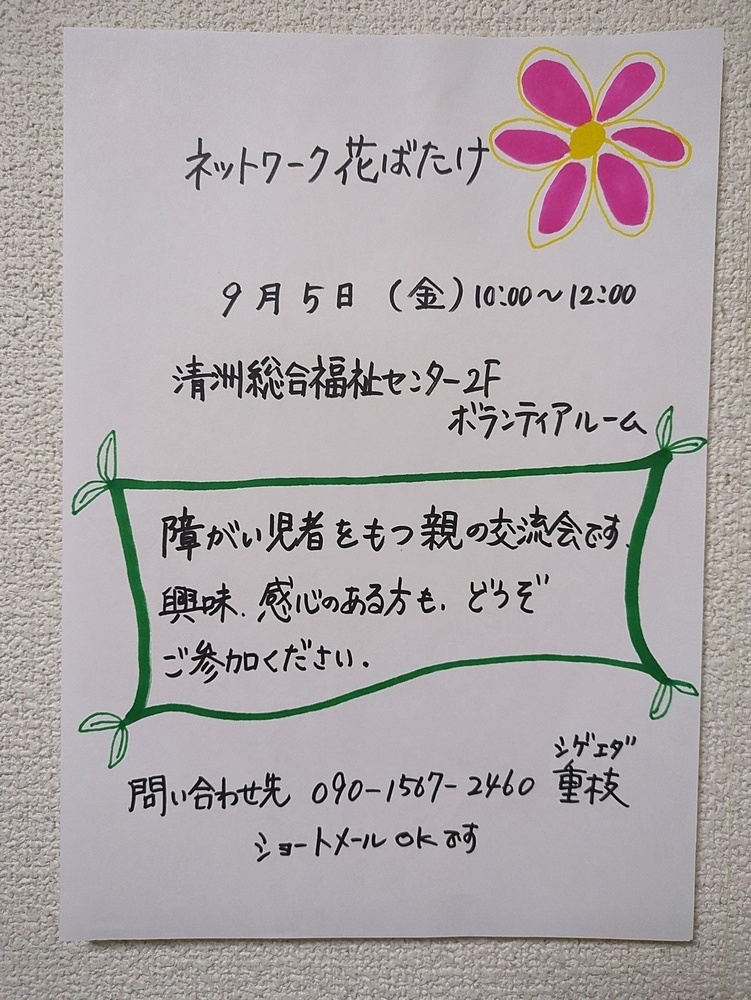 ネットワーク花ばたけ
9月5日（金）10:00〜12:00
清洲総合福祉センター2F
ボランティアルーム
障がい児者をもつ親の交流会です.
興味、感心のある方も、どうぞ
ご参加ください.
シゲエダ
問い合わせ先 090-1567-2460 重枝
ショートメールOKです